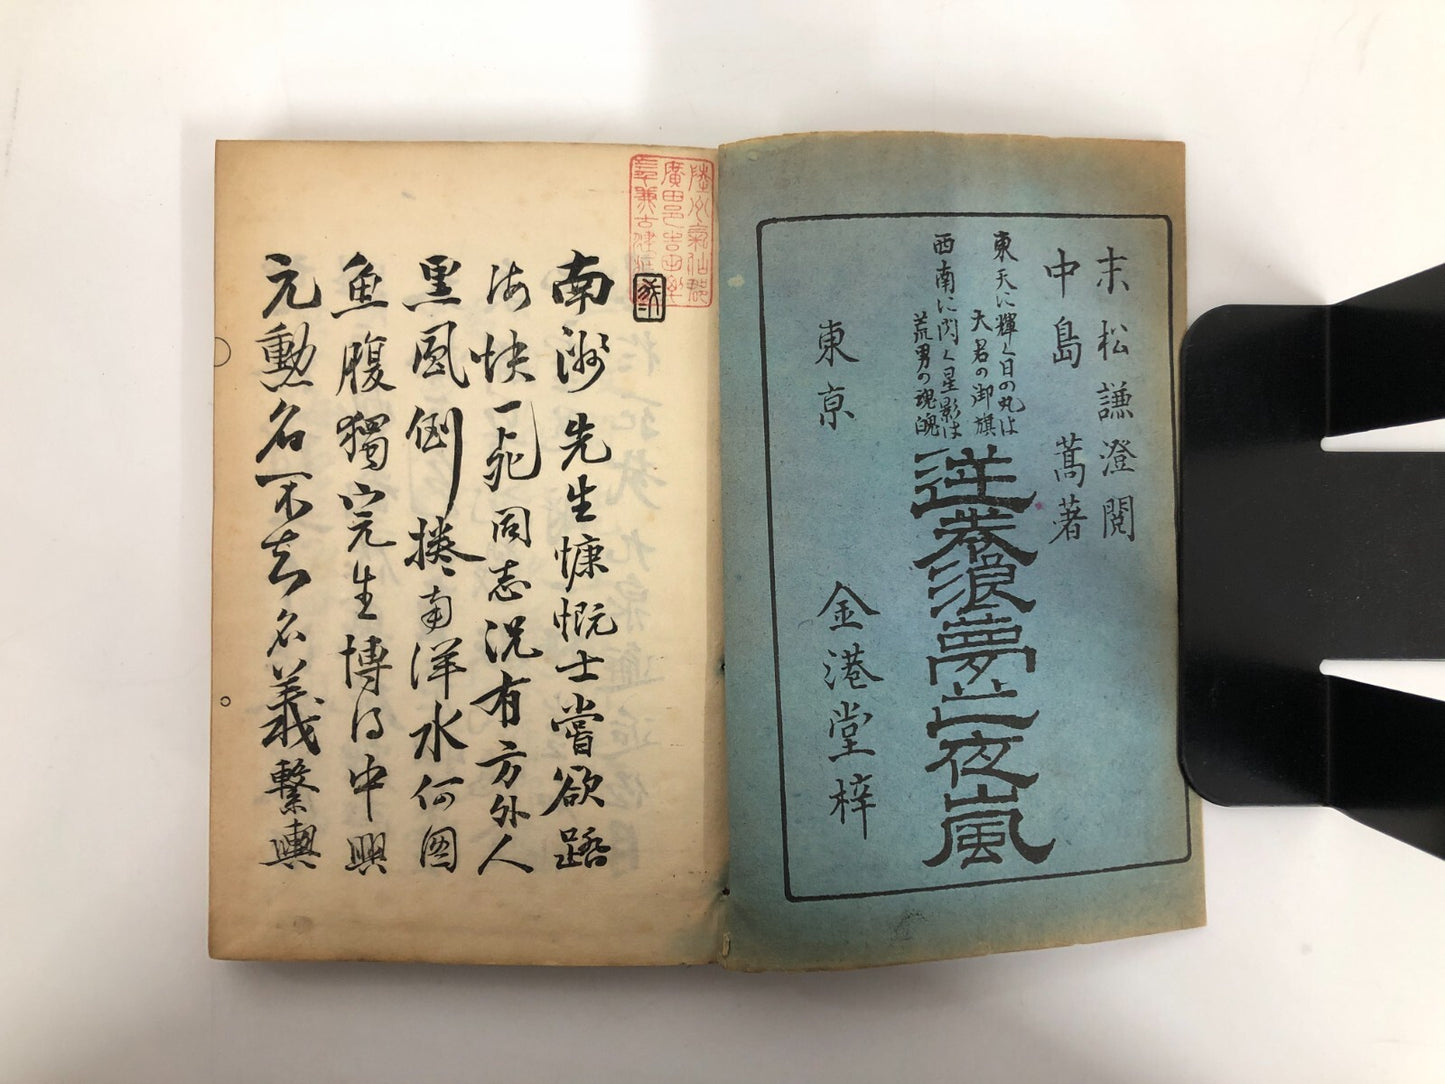 末松謙澄閲
中島蒿著
東天に輝く日の丸は
天君の御旗
西南に閃く星影は
荒男の魂魄
逆巻浪夢之夜嵐
東亰 金港堂梓
氣仙郡
廣田邑吉田
南洲先生慷慨士嘗欲蹈
海快一死同志況有方外人
黒風倒捲南洋水何図
魚腹獨完生博得中興
元勲名不去名義繋輿